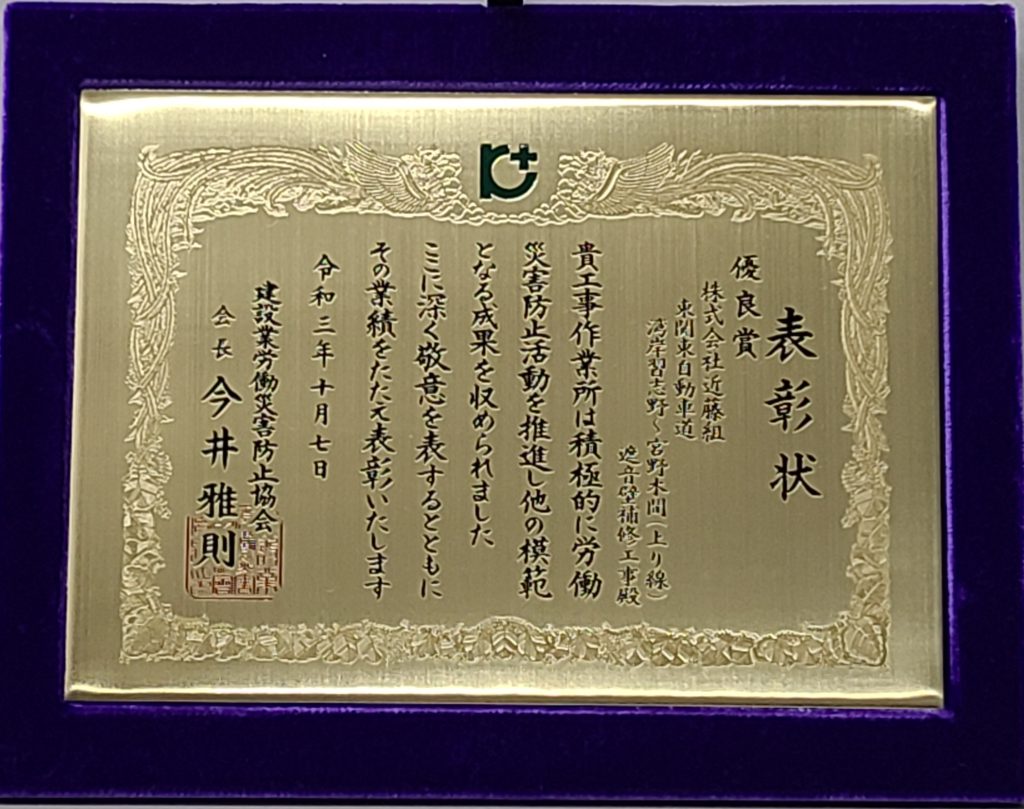 表彰状
優良賞
株式会社近藤組
東関東自動車道
湾岸習志野～宮野木間（上り線）
遮音壁補修工事殿
貴工事作業所は積極的に労働
災害防止活動を推進し他の模範
となる成果を収められました
ここに深く敬意を表するとともに
その業績をたたえ表彰いたします
令和三年十月七日
建設業労働災害防止協会
会長 今井雅則